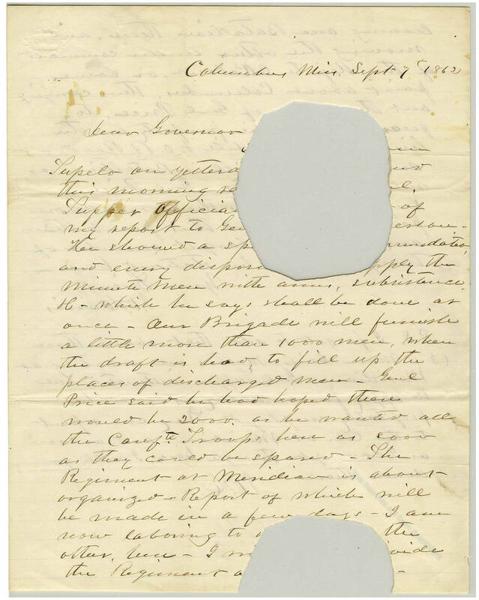 Columbus Miss Sept 7th 1862
Dear Governor
Tupelo on yesterd
this morning re
Tupper official of
my report to Gen
He showed a sp
and every dispos pply the
Minute Men with arms, subsistence
&c - which he says shall be done at
once - Our Brigade will furnish
a little more than 1000 men, when
the draft is had, to fill up the
places of discharged men - Genl
Price said he had hoped there
would be 2000. as he wanted all
the Confte Troops here as soon
as they could be spared - The
Regiment at Meridian is about
organized - Report of which will
be made in a few days - I am
now laboring to the
other, here - I m vide
the Regiment a